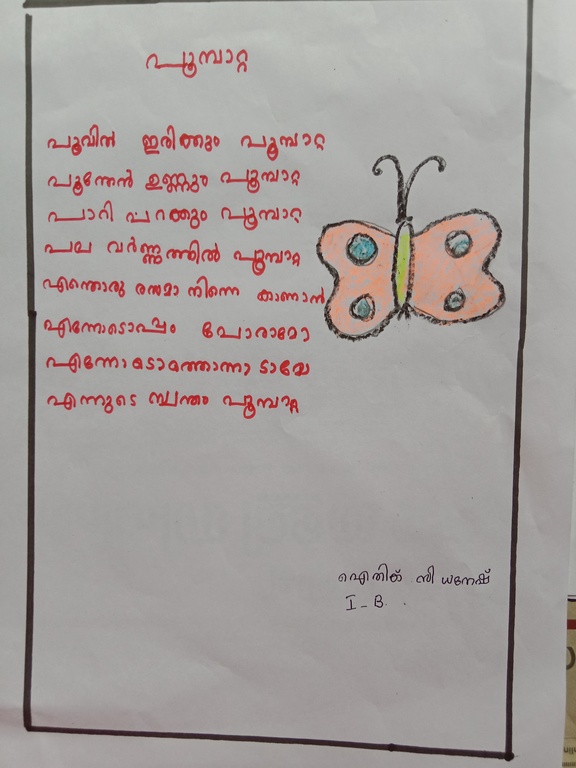 പൂമ്പാറ്റ
പൂവിൽ ഇരിത്തും പൂമ്പാറ്റ
പൂന്തേൻ ഉണ്ണും പൂമ്പാറ്റ
പാറി പറത്തും പൂമ്പാറ്റ
പല വർണ്ണത്തിൽ പൂമ്പാറ്റ
എന്തൊരു രസമാ നിന്നെ കാണാൻ
എന്നോടൊപ്പം പോരാമോ
എന്നോടൊത്തൊന്നാടാമോ
എന്നുടെ സ്വന്തം പൂമ്പാറ്റ
ഐതിക് സി ധനേഷ്
I-B.